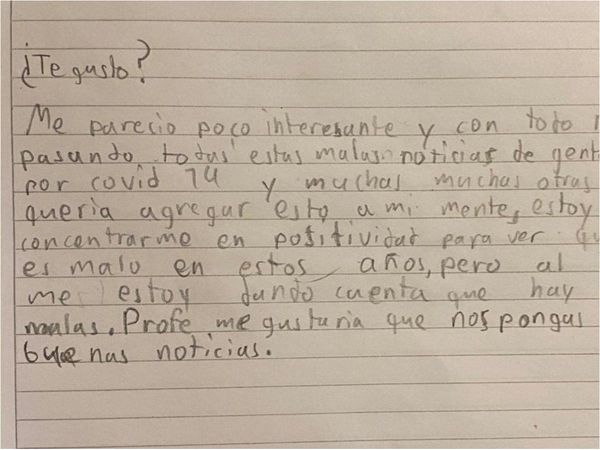 ¿Te gusto?
Me parecio poco interesante y con todo
pasando todas estas malas noticias de gent
por covid 14 y muchas muchas otras
queria agregar esto a mi mente, estoy
concentrarme en positividad para ver qu
es malo en estos años, pero al
me estoy dando cuenta que hay
malas. Profe me gustaria que nos pongas
buenas noticias.